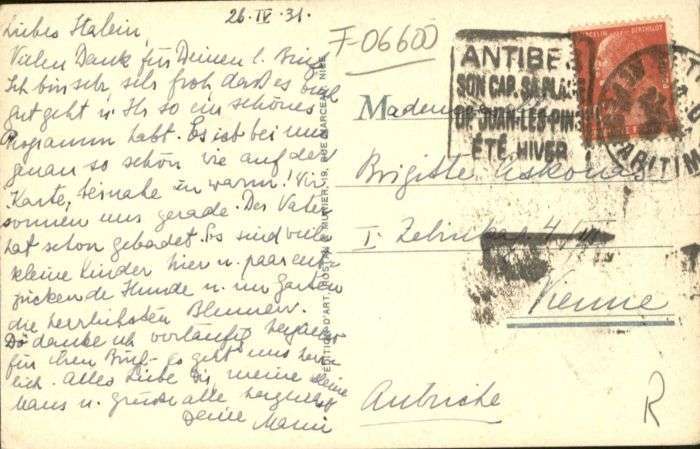 26. IV. 31.
Liebes
Vielen Dank für Deinen l. Brief
Ich bin sehr, sehr froh dass es Euch
gut geht u. Ihr so ein schönes
Programm habt. Es ist bei uns
genau so schön wie auf der
Karte, beinahe zu warm! Wir
sonnen uns gerade. Der Vater
hat schon gebadet. Es sind viele
kleine Kinder hier u. paar ent-
zückende Hunde u. im Garten
die herrlichsten Blumen.
danke ich vorläufig
für ihren Brief - es geht uns herr-
lich. Alles Liebe Dir, meine kleine
Maus u. grüsse alle
Deine Mami
F-06600
ANTIBES
SON CAP. SA PLAGE
DE JUAN-LES-PINS
ÉTÉ. HIVER
BERTHELOT
MARITIMES
Brigitte Askonas
I. Zelinkag. 4/
Vienne
Autriche
R
EDITION D'ART, ROSTAN & MUNIER, 9, RUE MARCEAU, NICE